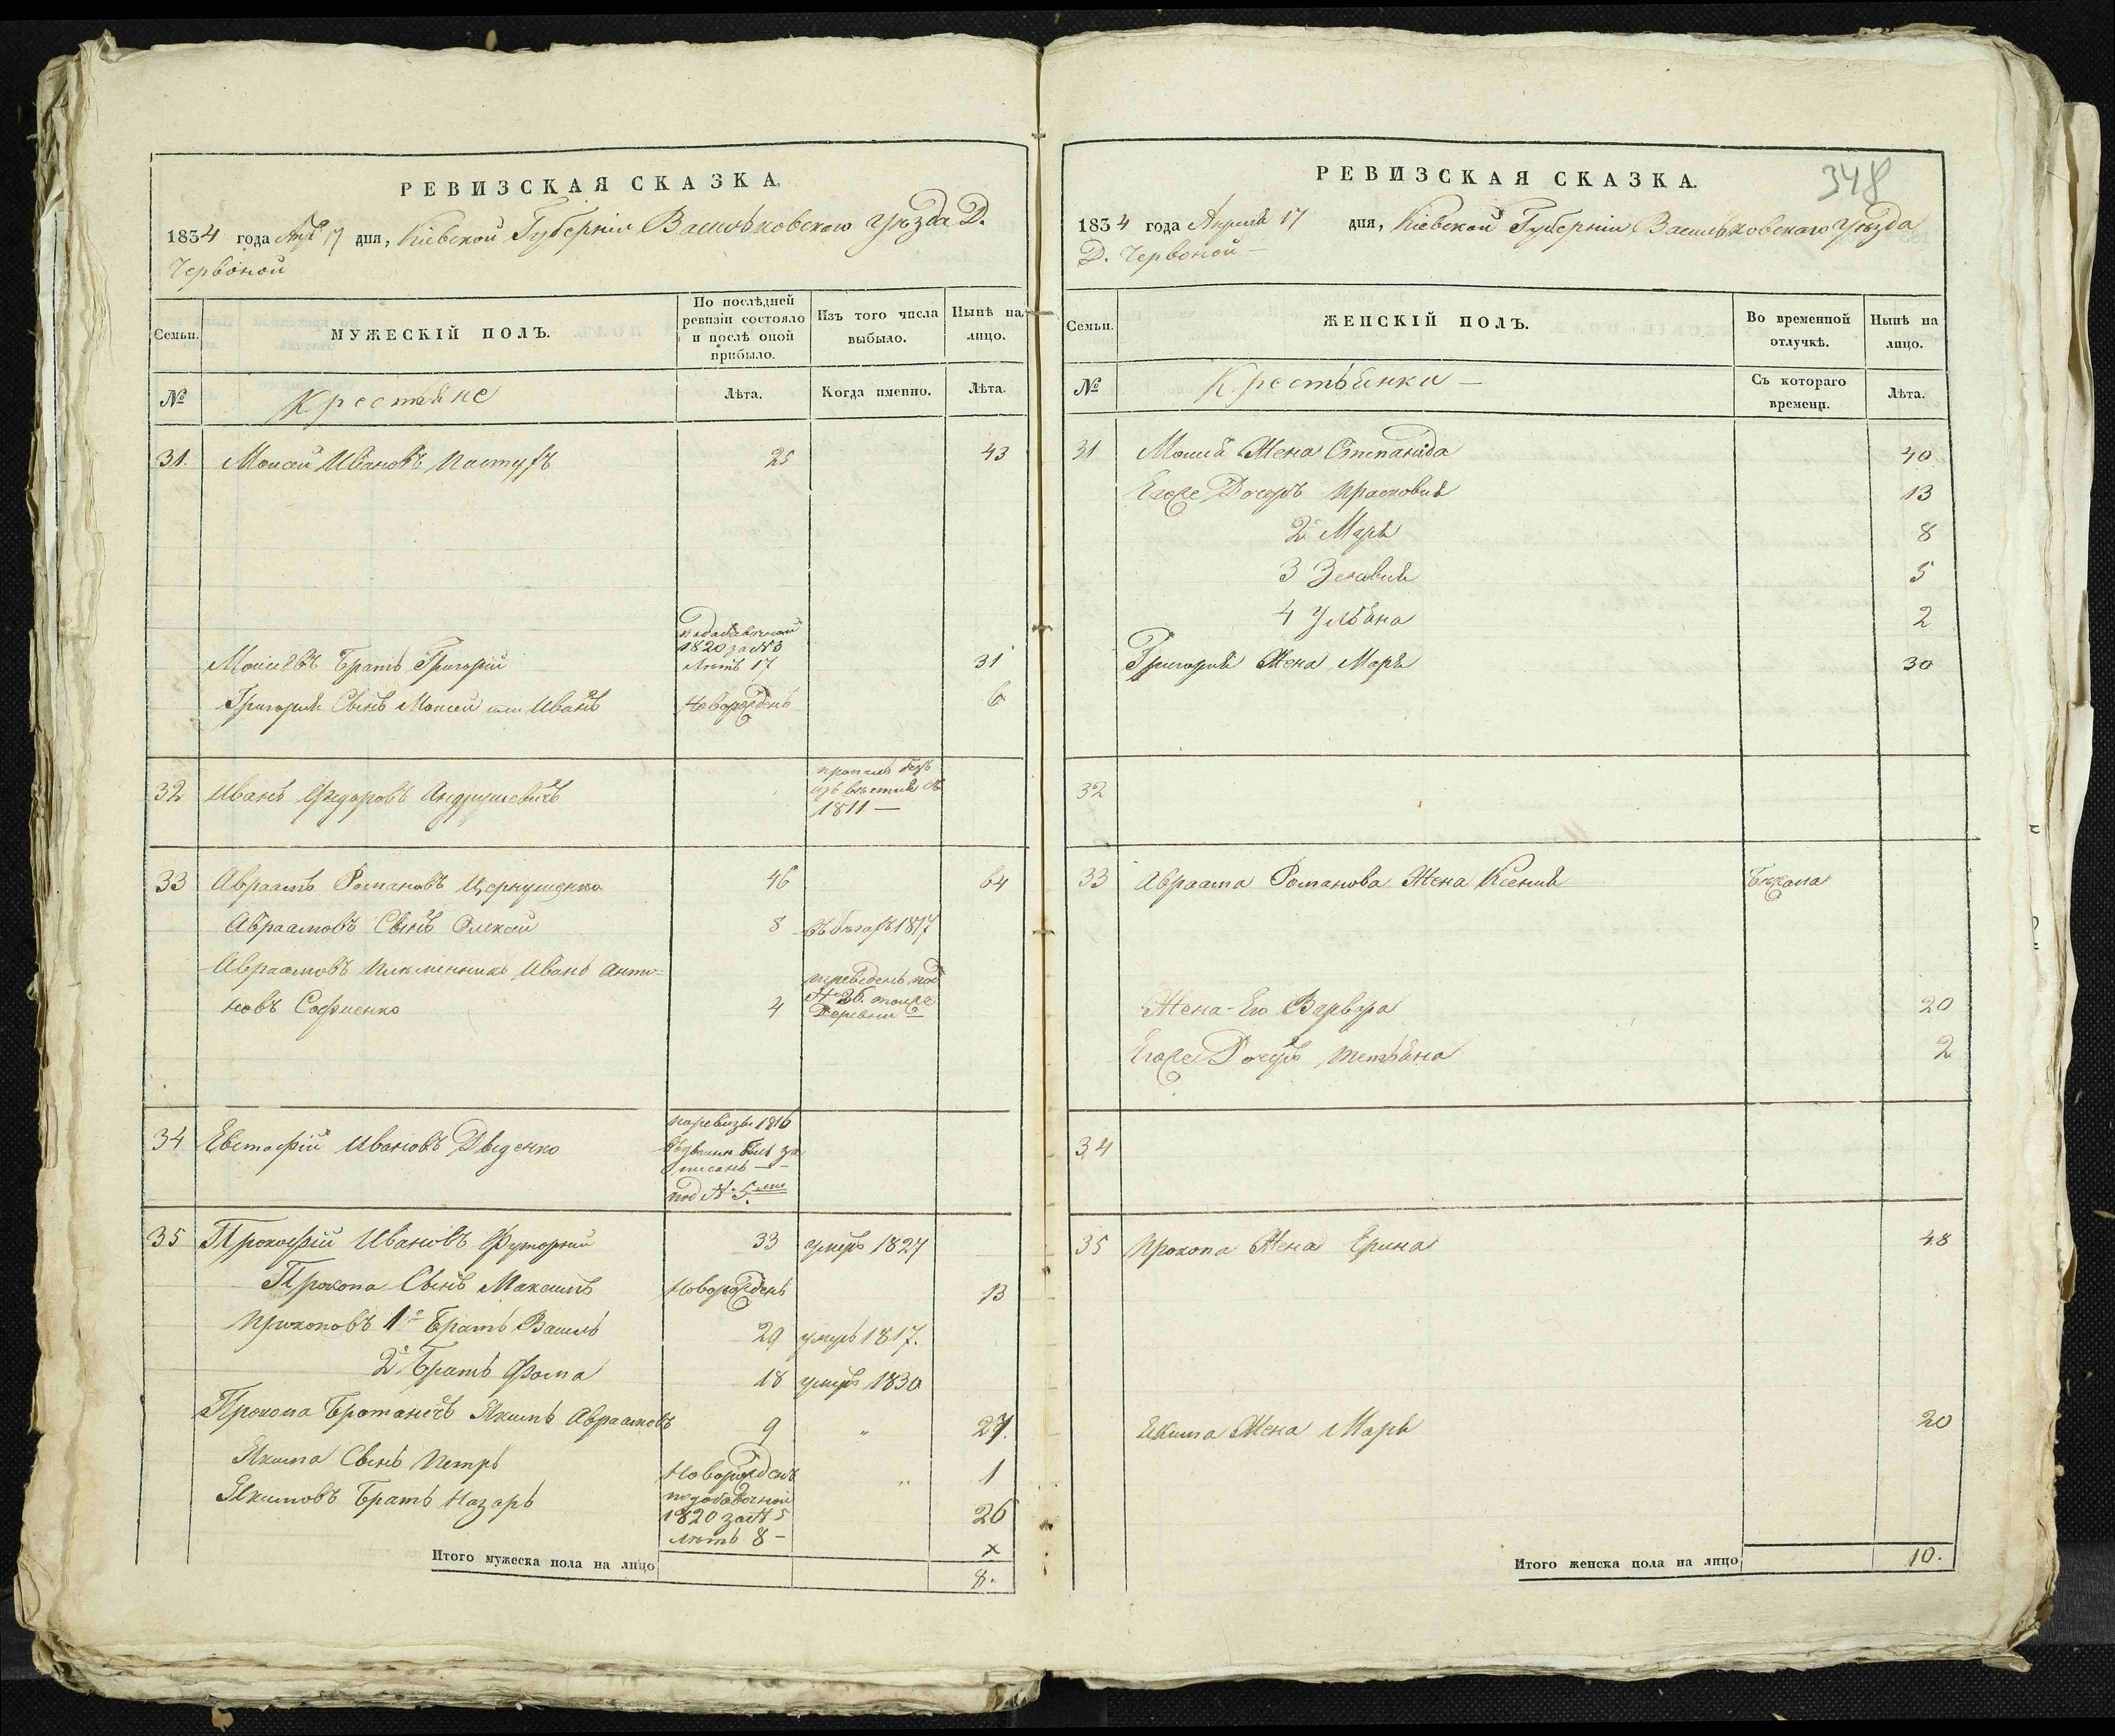 РЕВИЗСКАЯ СКАЗКА.
1834 года Апр 17 дня, Кіевской Губерніи Васильковского Уезда Д.
Червоной
Семьи.
МУЖЕСКІЙ ПОЛЪ.
По послѣдней ревизіи состояло и послѣ оной прибыло.
Изъ того числа выбыло.
Нынѣ на лицо.
№
Крестьяне
Лѣта.
Когда именно.
Лѣта.
31. Моисей Ивановъ Пастухъ 25 43
1820 за № 3
Моисеевъ Братъ Григорій летъ 17 31
Григорія Сынъ Моисей или Иванъ Новорожденъ 6
32 Иванъ Федоровъ Андрушевичъ
1811 —
33 Авраамъ Романовъ 46 64
Авраамовъ Сынъ Олексей 8 въ бегахъ 1817
Авраамовъ Племенникъ Иванъ Анто=
новъ Софиенко 4 переведенъ под № 26. тойже Деревни
34 Евстафій Ивановъ
по ревизіи 1816
писанъ —
под № 5
35 Прокофій Ивановъ Футорный 33 умеръ 1827
Прокопа Сынъ Максимъ Новорожденъ 13
Прокоповъ 1й Братъ Василь 29 умеръ 1817.
2й Братъ Фома 18 умеръ 1830
Прокопа Братаничъ Якимъ Авраамовъ 9 „ 27.
Якима Сынъ Петръ Новорожденъ „ 1
Якимовъ Братъ Назаръ
1820 за № 5
летъ 8 – 26
х
Итого мужеска пола на лицо 8.
348
РЕВИЗСКАЯ СКАЗКА.
1834 года Апреля 17 дня, Кіевской Губерніи Васильковского Уезда
Д. Червоной –
Семьи.
ЖЕНСКІЙ ПОЛЪ.
Во временной отлучкѣ.
Нынѣ на лицо.
№
Крестьянки –
Съ котораго времени.
Лѣта.
31 Моисея Жена Степанида 40
Егоже Дочерь Прасковия 13
2 Марья 8
3 Зеновия 5
4 Ульяна 2
Григория Жена Марья 30
32
33 Авраама Романова Жена Ксения Бежала
Жена Его Варвара 20
Егоже Дочерь Тетьяна 2
34
35 Прокопа Жена Ерина 48
Якима Жена Марья 20
Итого женска пола на лицо 10.